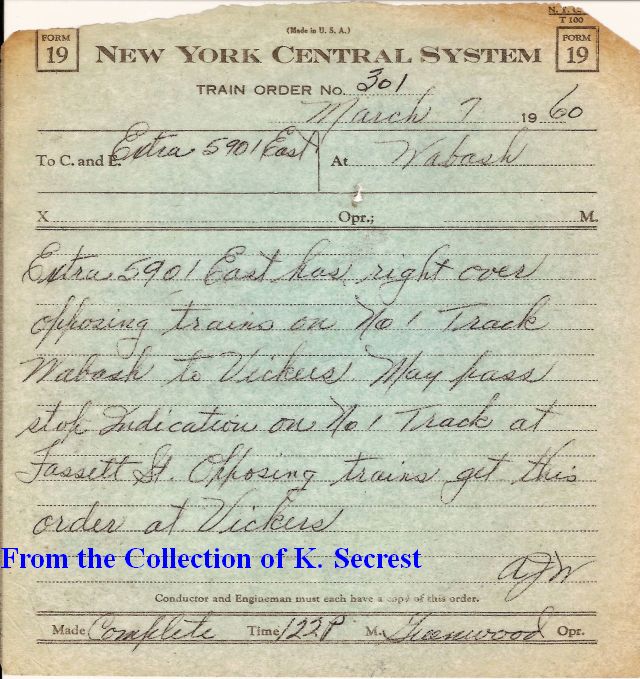 (Made in U. S. A.)
T 100
FORM 19
NEW YORK CENTRAL SYSTEM
FORM 19
TRAIN ORDER No. 301
March 7 1960
To C. and E. Extra 5901 East At Wabash
X Opr.; M.
Extra 5901 East has right over
opposing trains on No 1 Track
Wabash to Vickers May pass
stop Indication on No 1 Track at
Fassett St. Opposing trains get this
order at Vickers
From the Collection of K. Secrest
AJW
Conductor and Engineman must each have a copy of this order.
Made Complete Time 122P M. Opr.